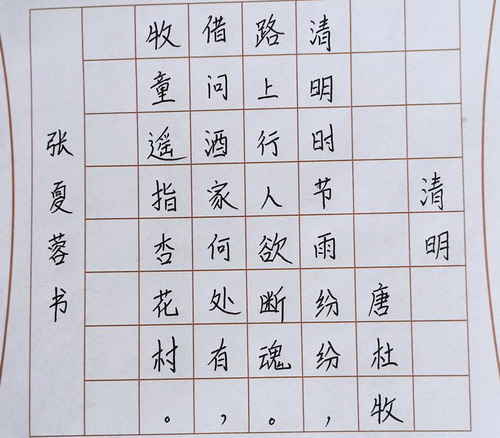 清明
唐杜牧
清明时节雨纷纷，
路上行人欲断魂。
借问酒家何处有，
牧童遥指杏花村。
张夏蓉书